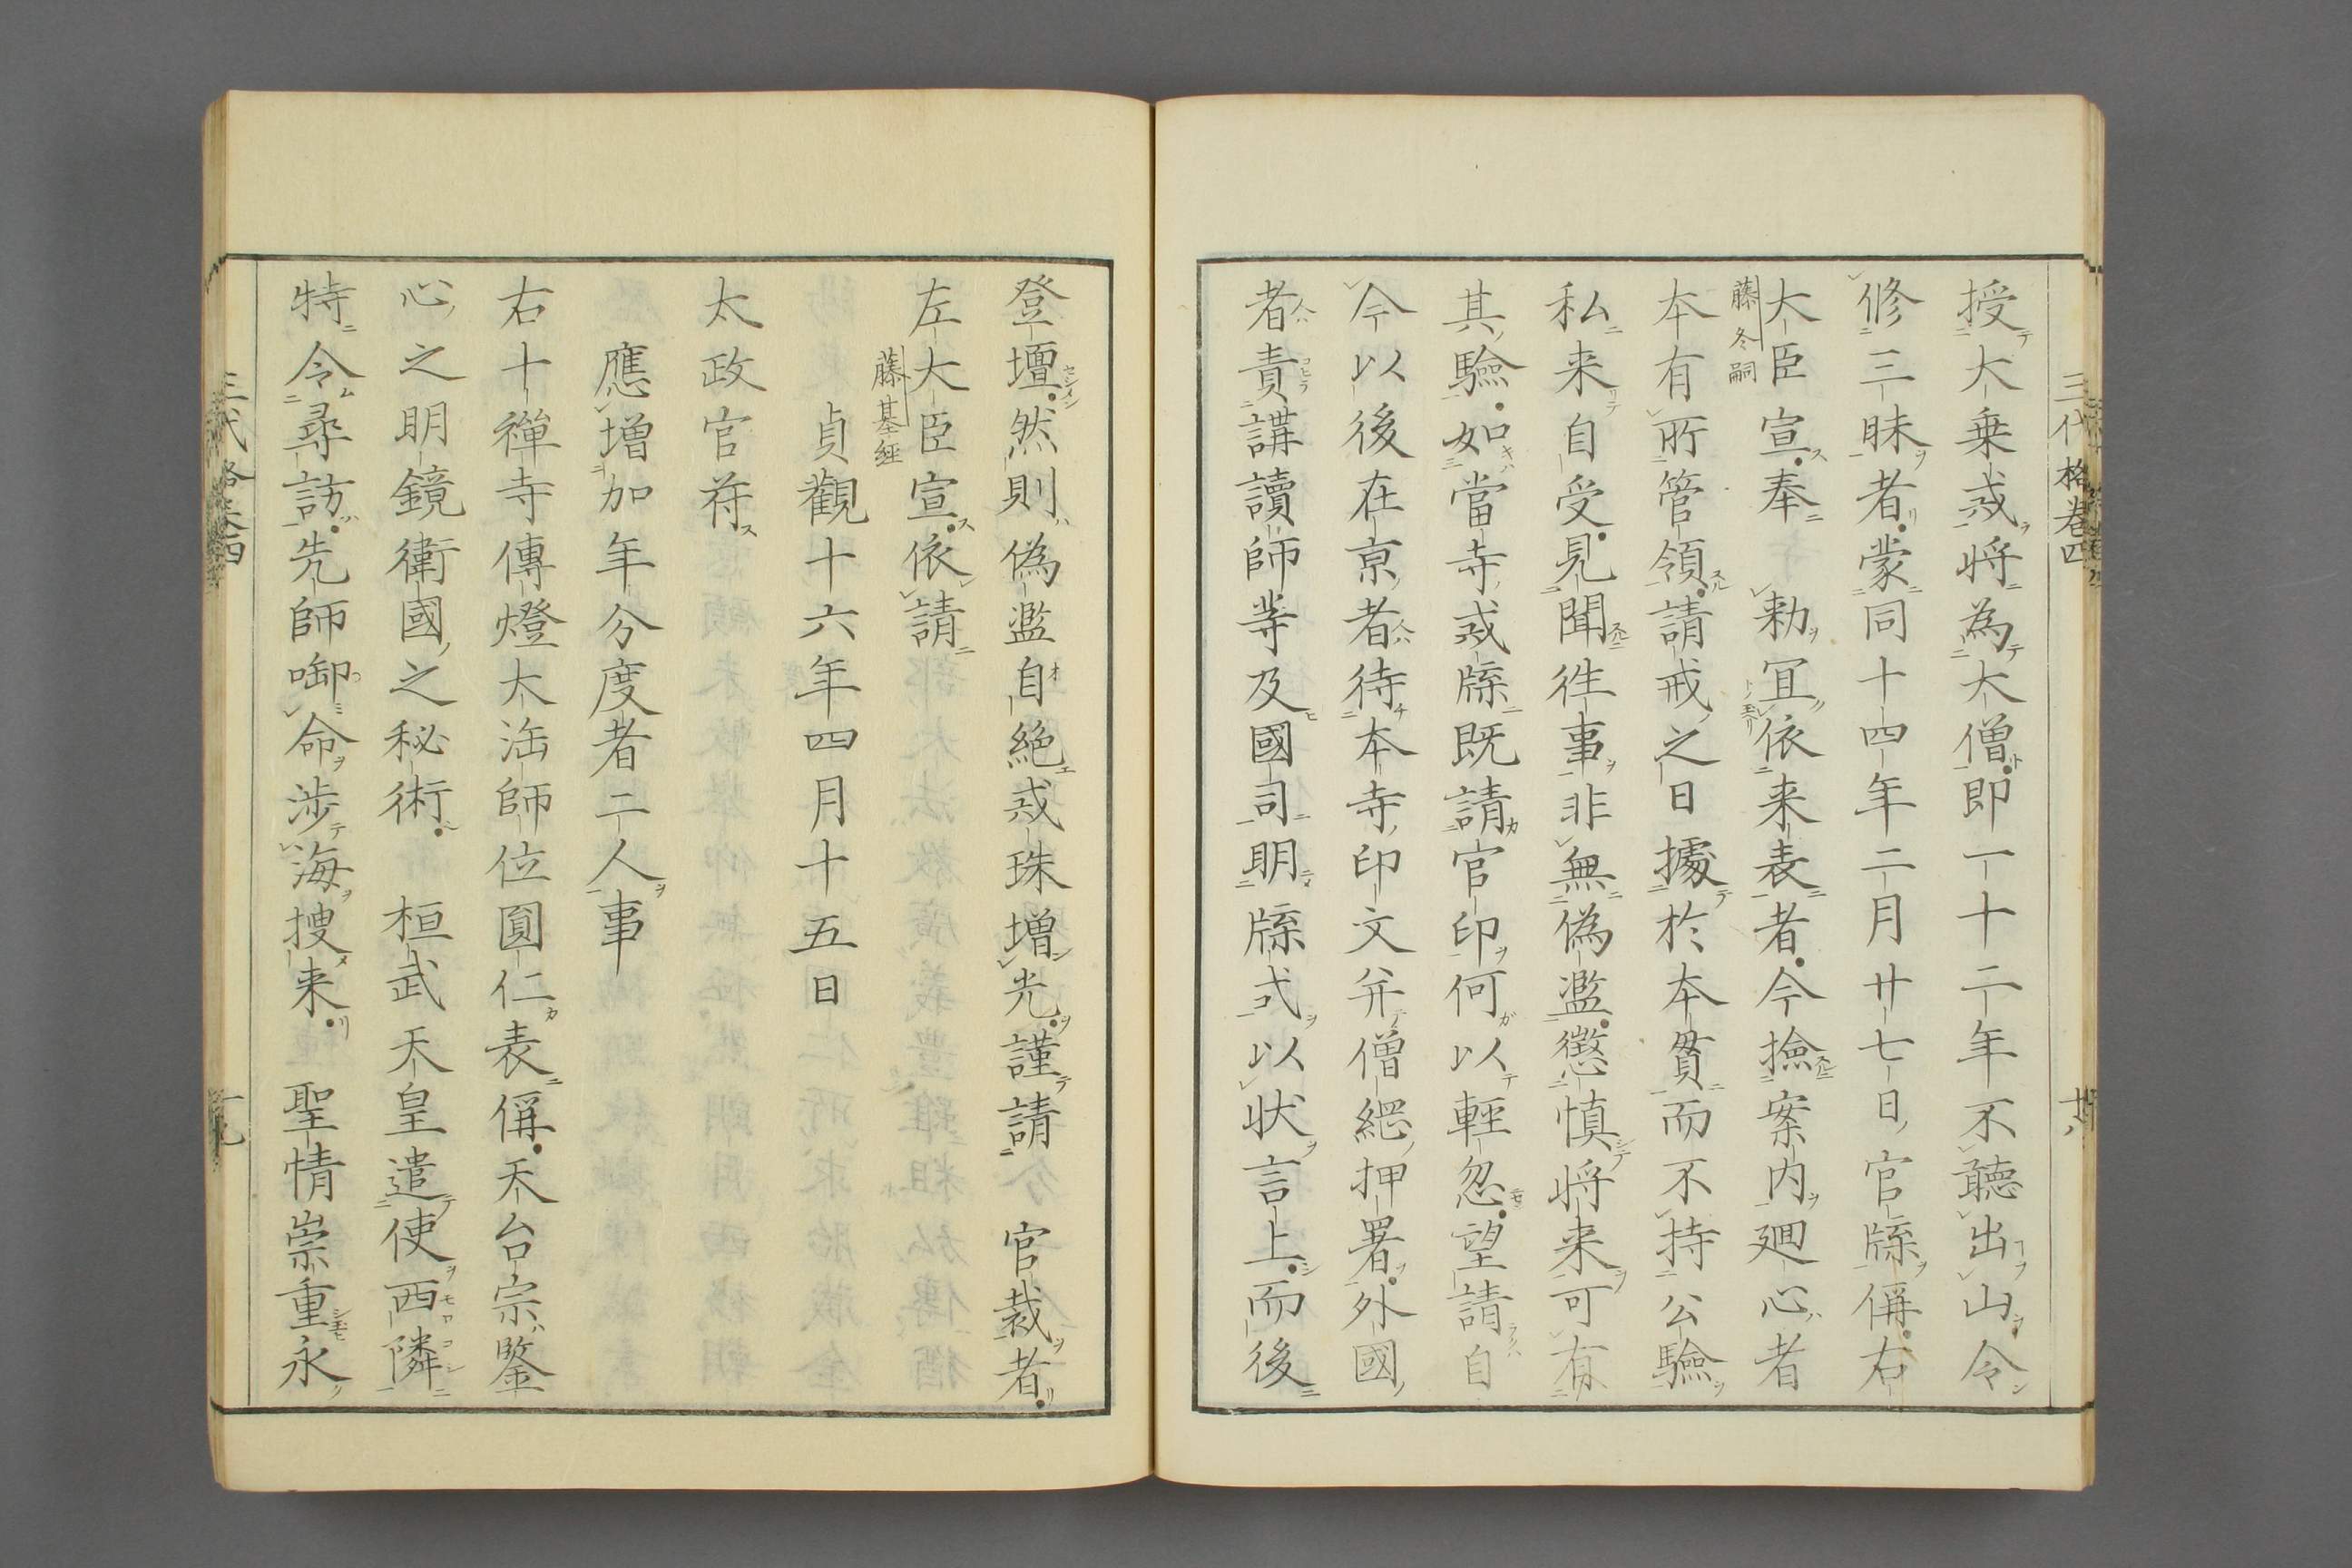 三代格卷四
十八
授大乗戒将為大僧即一十二年不聴出山令
修三昧者蒙同十四年二月廿七日官牒偁右
大臣宣奉 勅冝依来表者今撿案内廻心者
藤冬嗣
本有所管領請戒之日據於本貫而不持公驗
私来自受見聞徃事非無偽濫懲慎将来可有
其驗如當寺戒牒既請官印何以輕忽望請自
今以後在京者待本寺印文并僧綱押署外國
者責講讀師等及國司明牒式以状言上而後
登壇然則偽濫自絶戒珠増光謹請 官裁者
左大臣宣依請
藤基經
貞觀十六年四月十五日
太政官符
應増加年分度者二人事
右十禪寺傳燈大法師位圓仁表偁天台宗鑒
心之明鏡衛國之秘術 桓武天皇遣使西隣
特令尋訪先師啣命渉海捜来 聖情崇重永
三代格卷四
十九